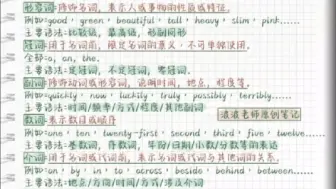 形容词:修饰名词,表示人或事物的性质或特征。
例如:good, green, beautiful, tall, heavy, slim, pink......
主要语法:比较级,最高级,形副同形
冠词:用于名词前,限定名词的意义,不可单独使用。
全部:a, an, the.
主要语法:定冠词,不定冠词,零冠词.
副词:修饰动词或形容词,说明时间,地点,程度等。
例如:quickly, now, luckily, truly, possibly, terribly......
主要语法:时间/频率/方式/程度/其他副词
数词:表示数目或顺序
滚滚老师原创笔记
例如:one, ten, twenty-first, second, third, five, twelve......
主要语法:基数词,序数词,年份/日期/小数/分数等表达
介词:用于名词或代词前,表示名词或代词与其他词的关系。
例如:on, by, in, to, across, beside, behind, between......
主要语法:地点/方向/时间/方式/多义介词